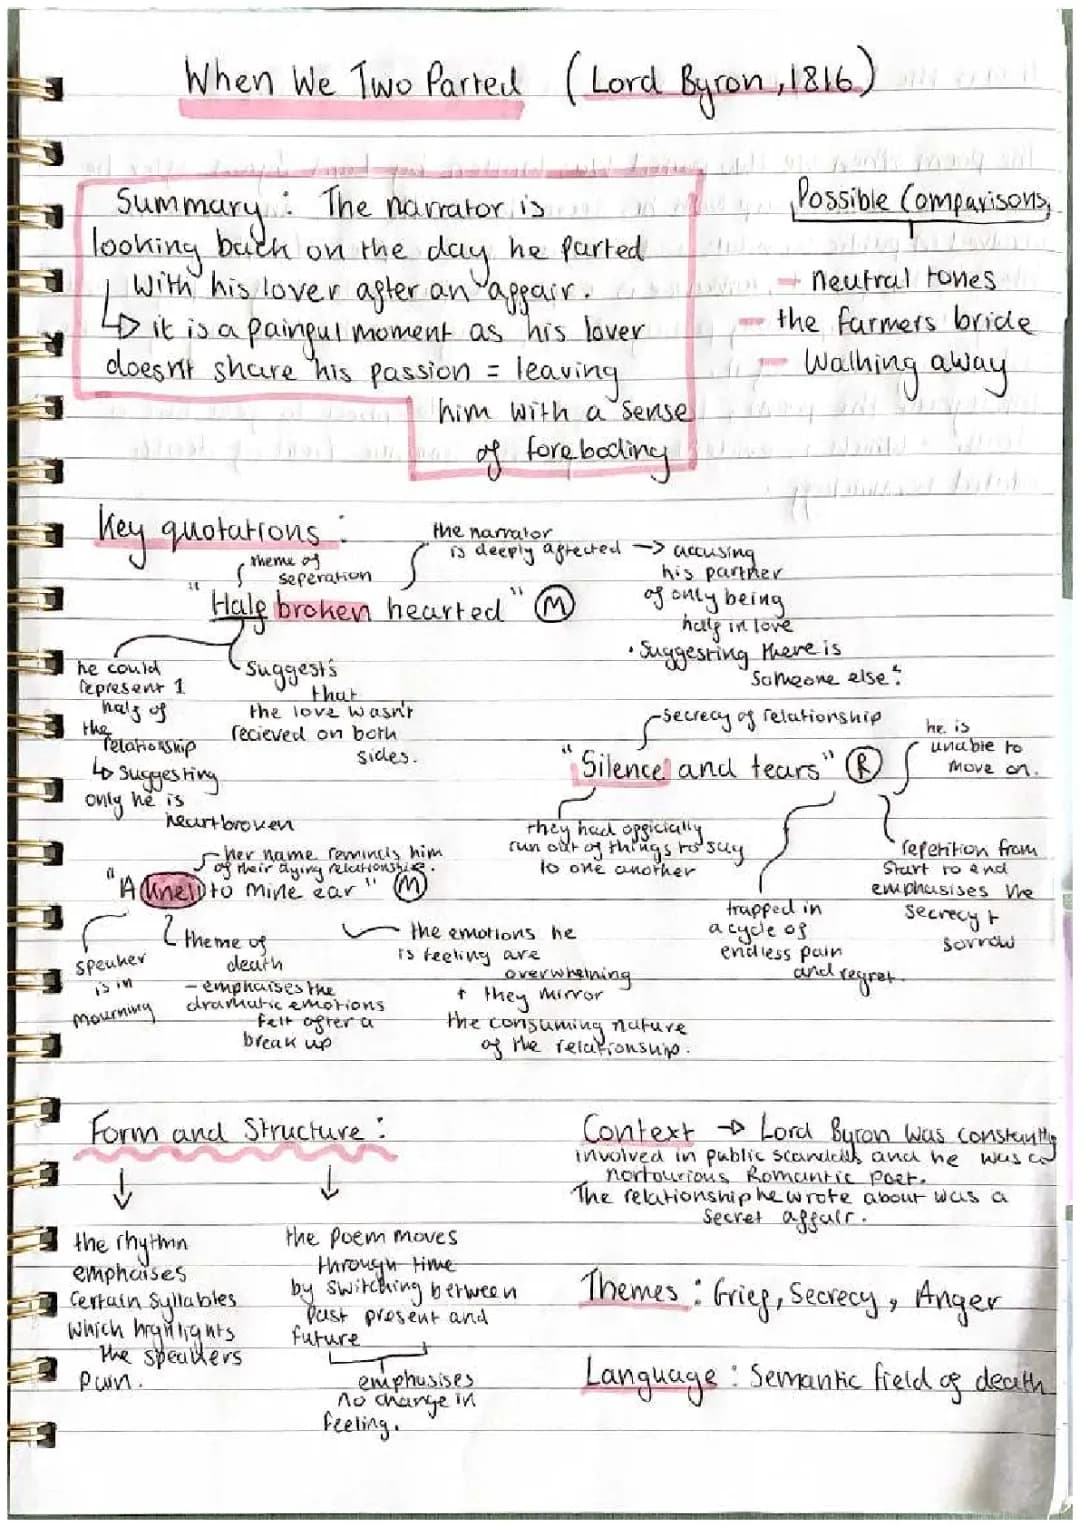 When We Two Parted (Lord Byron, 1816)
Summary: The narrator is
looking back on the day he parted
with his lover after an affair.
↳ it is a painful moment as his lover
doesn't share his passion = leaving
him with a sense
of foreboding
Possible Comparisons
- neutral tones
- the farmers bride
- Walking away
Key quotations:
theme of
seperation
the narrator
is deeply affected → accusing
his partner
of only being
half in love
• Suggesting there is
someone else?
"Half broken hearted" (M)
he could
represent 1
half of
the
relationship
↳ Suggesting
only he is
heartbroken
Suggests
that
the love wasn't
recieved on both
sides.
secrecy of relationship
"Silence and tears" (R)
he is
unable to
move on.
they had officially
run out of things to say
to one another
trapped in
a cycle of
endless pain
and regret.
repetition from
start to end
emphasises the
secrecy +
sorrow
her name reminds him
of their dying relationship.
"A knell to mine ear" (M)
speaker
is in
mourning
theme of
death
- emphasises the
dramatic emotions
felt after a
break up
the emotions he
is feeling are
overwhelming
+ they mirror
the consuming nature
of the relationship.
Form and Structure:
the rhythm
emphaises
certain syllables
which highlights
the speakers
pain.
the poem moves
through time
by switching between
past present and
future
emphasises
no change in
feeling.
Context → Lord Byron was constantly
involved in public scandals and he was a
nortourious Romantic poet.
The relationship he wrote about was a
secret affair.
Themes: Grief, Secrecy, Anger
Language: Semantic field of death